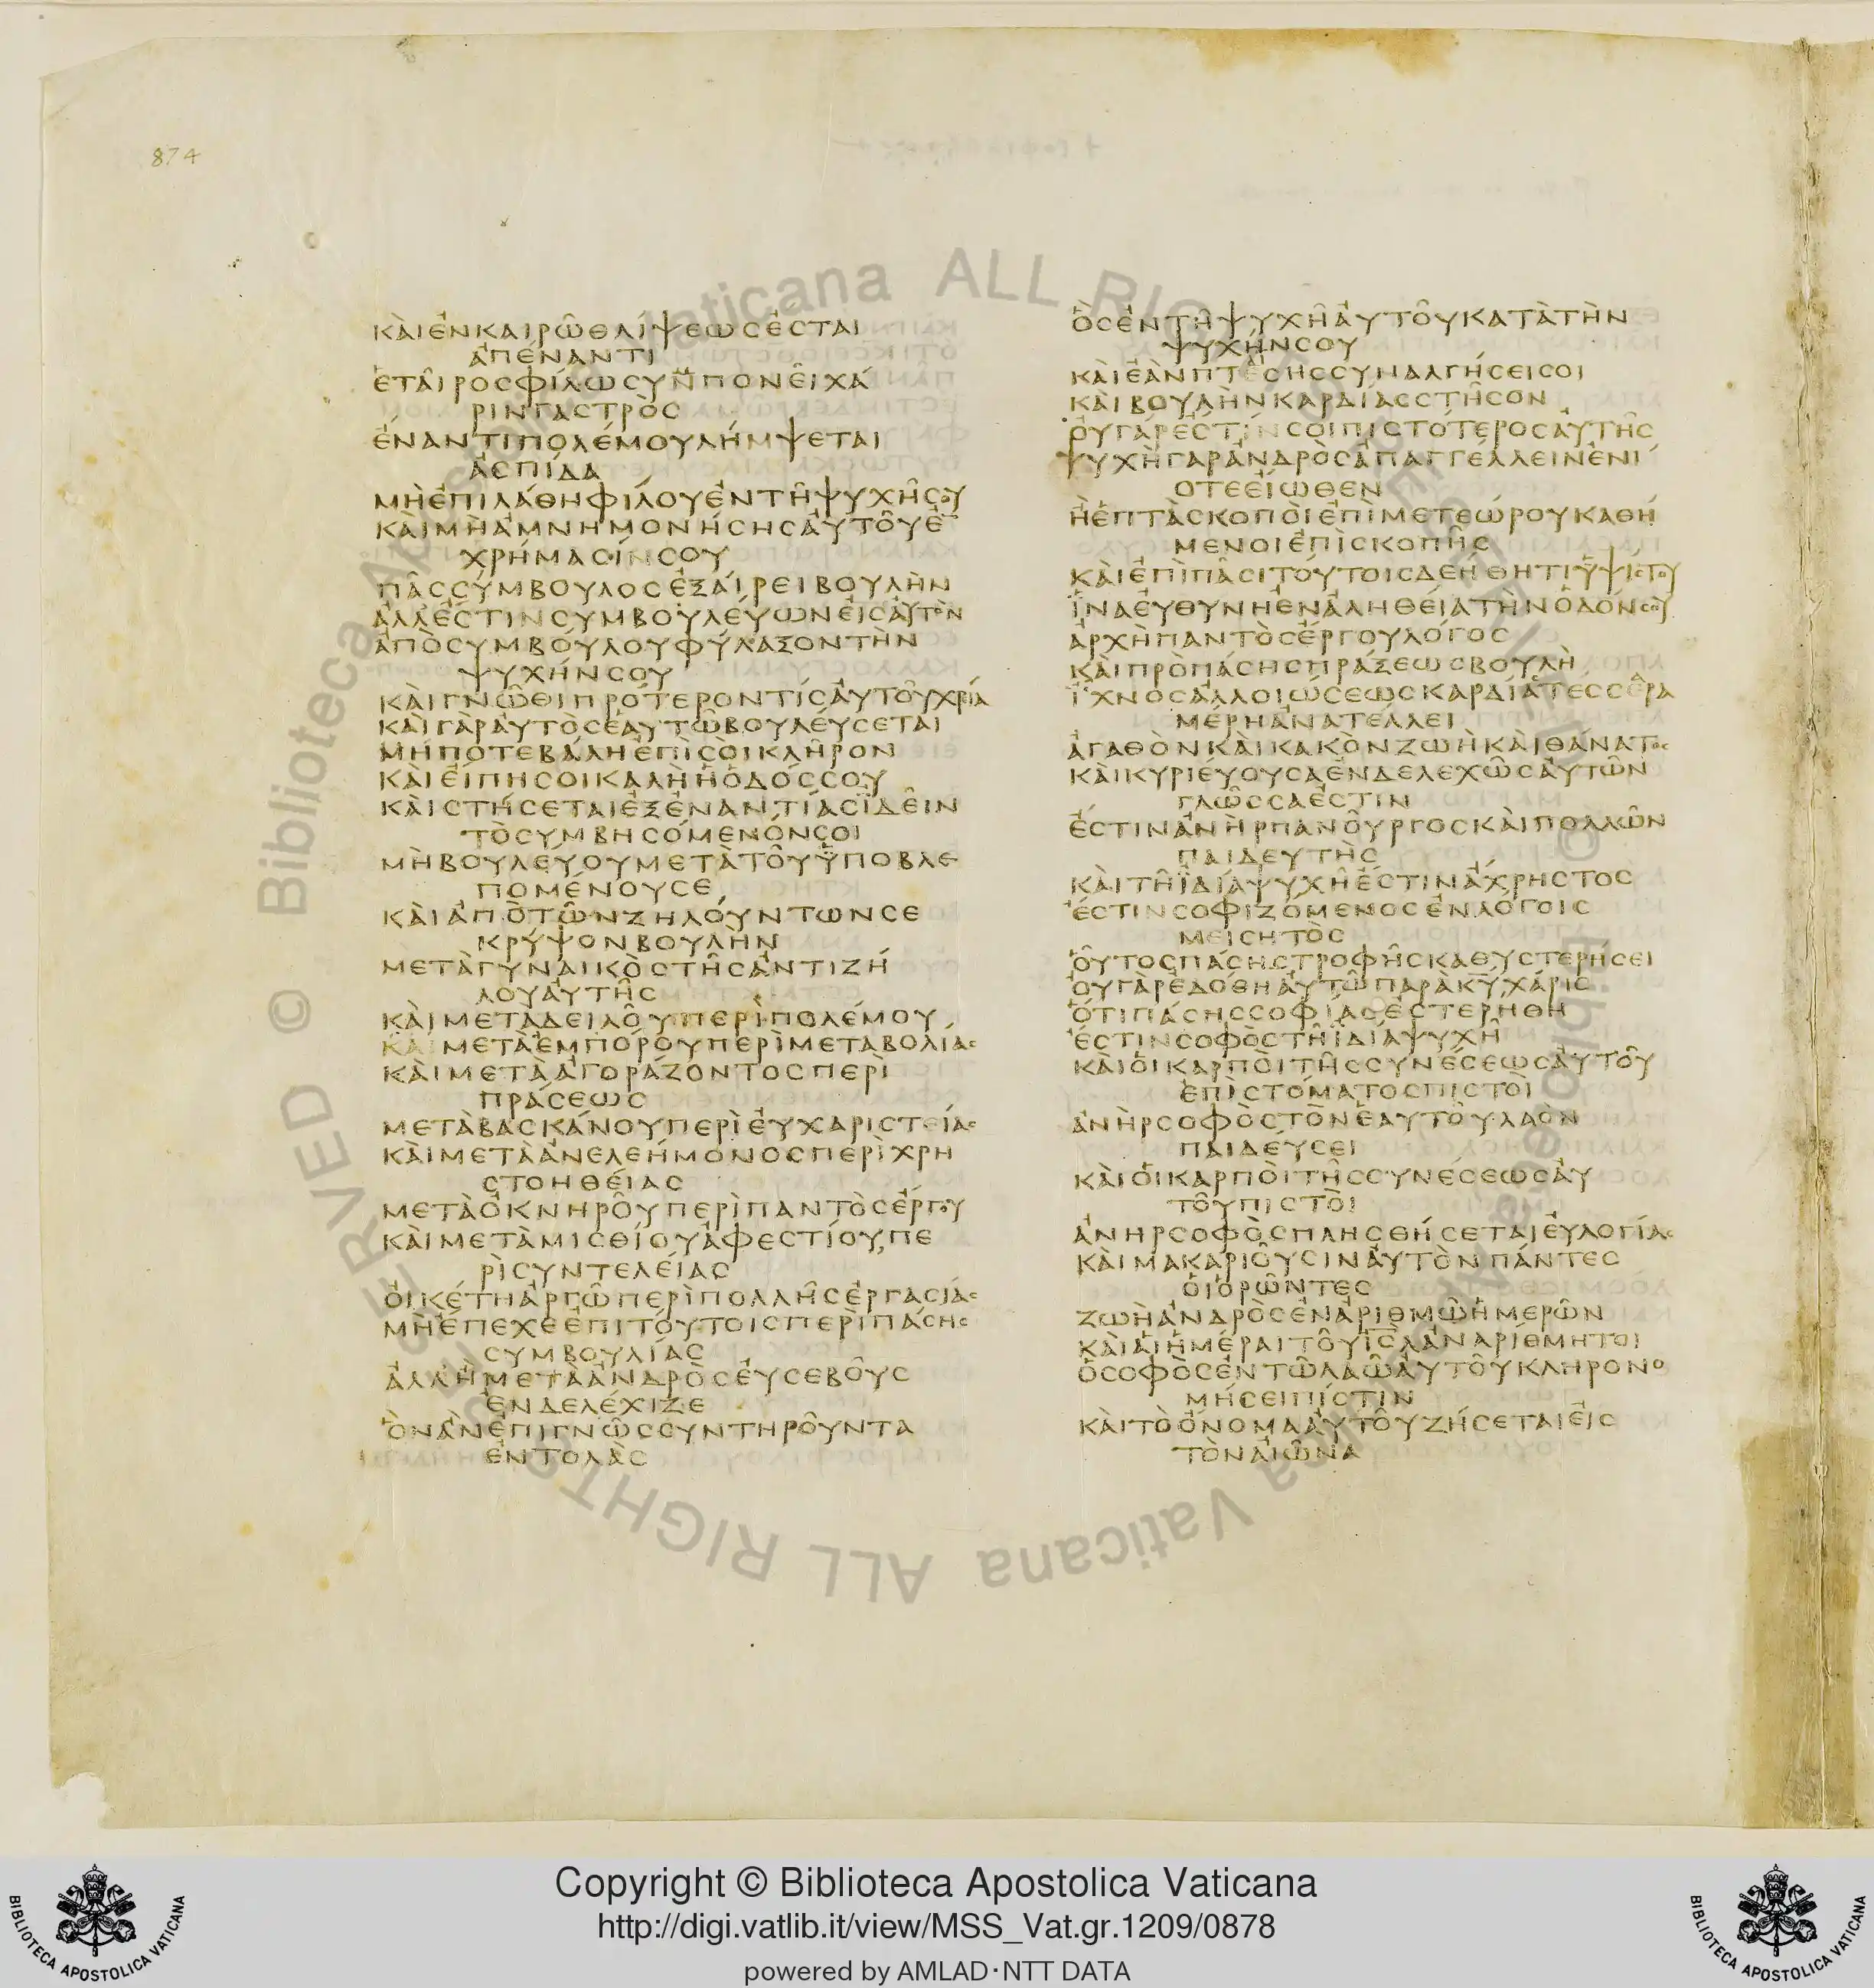 874
ΚΑῚἘΝΚΑΙΡΩ͂ΘΛΊΨΕΩϹἜϹΤΑΙ
ἈΠΈΝΑΝΤΙ
ἙΤΑΙ͂ΡΟϹΦΊΛΩϹΥΝΠΟΝΕΙ͂ΧΆ
ΡΙΝΓΑϹΤΡῸϹ
ἜΝΑΝΤΙΠΟΛΈΜΟΥΛΉΜΨΕΤΑΙ
ἈϹΠΊΔΑ
ΜῊἘΠΙΛΆΘΗΦΊΛΟΥἘΝΤΗ͂ΨΥΧΗ͂ϹΟΥ
ΚΑῚΜῊἈΜΝΗΜΟΝΉϹΗϹΑΥ̓ΤΟΥ͂Ἐ̅
ΧΡΉΜΑϹΊΝϹΟΥ
ΠΑ͂ϹϹΎΜΒΟΥΛΟϹἘΞΑΊΡΕΙΒΟΥΛῊΝ
ἈΛΛἜϹΤΙΝϹΥΜΒΟΥΛΕΎΩΝΕἸϹΑὙΤῸΝ
ἈΠῸϹΥΜΒΟΎΛΟΥΦΎΛΑΞΟΝΤῊΝ
ΨΥΧΉΝϹΟΥ
ΚΑῚΓΝΩ͂ΘΙΠΡΌΤΕΡΟΝΤΊϹΑΥ̓ΤΟΥ͂ΧΡΊΑ
ΚΑῚΓᾺΡΑΥ̓ΤῸϹἙΑΥΤΩ͂ΒΟΥΛΕΎϹΕΤΑΙ
ΜΉΠΟΤΕΒΆΛΗἘΠῚϹΟῚΚΛΗ͂ΡΟΝ
ΚΑῚΕἼΠΗϹΟΙΚΑΛῊἩὉΔΌϹϹΟΥ
ΚΑῚϹΤΉϹΕΤΑΙἘΞἘΝΑΝΤΊΑϹΪΔΕΙ͂Ν
ΤῸϹΥΜΒΗϹΌΜΕΝΌΝϹΟΙ
ΜῊΒΟΥΛΕΎΟΥΜΕΤᾺΤΟΥ͂ΫΠΟΒΛΕ
ΠΟΜΈΝΟΥϹΕ
ΚΑῚἈΠῸΤΩ͂ΝΖΗΛΟΎΝΤΩΝϹΕ
ΚΡΎΨΟΝΒΟΥΛῊΝ
ΜΕΤᾺΓΥΝΑΙΚῸϹΤΗ͂ϹἈΝΤΙΖΉ
ΛΟΥΑΥ̓ΤΗ͂Ϲ
ΚΑῚΜΕΤᾺΔΕΙΛΟΥ͂ΠΕΡῚΠΟΛΈΜΟΥ
ΚΑΙΜΕΤᾺἘΜΠΌΡΟΥΠΕΡῚΜΕΤΑΒΟΛΊΑϹ
ΚΑῚΜΕΤᾺἈΓΟΡΆΖΟΝΤΟϹΠΕΡῚ
ΠΡΆϹΕΩϹ
ΜΕΤᾺΒΑϹΚΆΝΟΥΠΕΡῚΕΥ̓ΧΑΡΙϹΤΕΊΑϹ
ΚΑῚΜΕΤᾺἈΝΕΛΕΉΜΟΝΟϹΠΕΡῚΧΡΗ
ϹΤΟΗΘΕΊΑϹ
ΜΕΤᾺὈΚΝΗΡΟΥ͂ΠΕΡῚΠΑΝΤῸϹἜΡΓΟΥ
ΚΑῚΜΕΤᾺΜΙϹΘΊΟΥἈΦΕϹΤΊΟΥΠΕ
ΡῚϹΥΝΤΕΛΕΊΑϹ
ΟἸΚΈΤΗἈΡΓΩ͂ΠΕΡῚΠΟΛΛΗ͂ϹἘΡΓΑϹΊΑϹ
ΜῊἜΠΕΧΕἘΠΙΤΟΎΤΟΙϹΠΕΡῚΠΆϹΗϹ
ϹΥΜΒΟΥΛΊΑϹ
ἈΛΛἬΜΕΤᾺἈΝΔΡῸϹΕΥ̓ϹΕΒΟΥ͂Ϲ
ἘΝΔΕΛΈΧΙΖΕ
ὋΝἊΝἘΠΙΓΝΩ͂ϹϹΥΝΤΗΡΟΥ͂ΝΤΑ
ἘΝΤΟΛᾺϹ
ὋϹἘΝΤΗ͂ΨΥΧΗ͂ΑΥ̓ΤΟΥ͂ΚΑΤᾺΤῊΝ
ΨΥΧΉΝϹΟΥ
ΚΑῚἘᾺΝΠΤΕϹΗϹϹΥΝΑΛΓΉϹΕΙϹΟΙ
ΚΑῚΒΟΥΛῊΝΚΑΡΔΊΑϹϹΤΗ͂ϹΟΝ
ΟΥ̓ΓΆΡἘϹΤΊΝϹΟΙΠΙϹΤΌΤΕΡΟϹΑΥ̓ΤΗ͂Ϲ
ΨΥΧῊΓᾺΡἈΝΔΡῸϹἈΠΑΓΓΈΛΛΕΙΝἘΝΊ
ΟΤΕΕἼΩΘΕΝ
ἪἙΠΤᾺϹΚΟΠΟῚἘΠῚΜΕΤΕΏΡΟΥΚΑΘΉ
ΜΕΝΟΙἘΠῚϹΚΟΠΗ͂Ϲ
ΚΑῚἘΠῚΠΑ͂ϹΙΤΟΎΤΟΙϹΔΕΉΘΗΤΙΫΨΊϹΤΟΥ
ἽΝΑΕΥ̓ΘΎΝΗἘΝἈΛΗΘΕΊΑΤῊΝὉΔΌΝϹΟΥ
ἈΡΧῊΠΑΝΤῸϹἜΡΓΟΥΛΌΓΟϹ
ΚΑῚΠΡῸΠΆϹΗϹΠΡΆΞΕΩϹΒΟΥΛῊ
ἼΧΝΟϹἈΛΛΟΙΏϹΕΩϹΚΑΡΔΊΑΤΈϹϹΕΡΑ
ΜΈΡΗἈΝΑΤΈΛΛΕΙ
ἈΓΑΘῸΝΚΑῚΚΑΚῸΝΖΩῊΚΑῚΘΆΝΑΤΟϹ
ΚΑῚΚΥΡΙΕΎΟΥϹΑἘΝΔΕΛΕΧΩ͂ϹΑΥ̓ΤΩ͂Ν
ΓΛΩ͂ϹϹΑἘϹΤΙΝ
ἜϹΤΙΝἈΝῊΡΠΑΝΟΥ͂ΡΓΟϹΚΑῚΠΟΛΛΩ͂Ν
ΠΑΙΔΕΥΤῊϹ
ΚΑῚΤΗ͂ΪΔΊΑΨΥΧΗ͂ἘϹΤΙΝἌΧΡΗϹΤΟϹ
ἜϹΤΙΝϹΟΦΙΖΌΜΕΝΟϹἘΝΛΌΓΟΙϹ
ΜΕΙϹΗΤῸϹ
ΟὟΤΟϹΠΆϹΗϹΤΡΟΦΗ͂ϹΚΑΘΥϹΤΕΡΉϹΕΙ
ΟΥ̓ΓᾺΡἘΔΌΘΗΑΥ̓ΤΩ͂ΠΑΡᾺΚ̅Υ̅ΧΆΡΙϹ
ὍΤΙΠΆϹΗϹϹΟΦΊΑϹἘϹΤΕΡΉΘΗ
ἜϹΤΙΝϹΟΦῸϹΤΗ͂ΙΔΊΑΨΥΧΗ͂
ΚΑῚΟἹΚΑΡΠΟῚΤΗ͂ϹϹΥΝΈϹΕΩϹΑΥ̓ΤΟΥ͂
ἘΠῚϹΤΌΜΑΤΟϹΠΙϹΤΟῚ
ἈΝῊΡϹΟΦῸϹΤῸΝἙΑΥΤΟΥ͂ΛΑῸΝ
ΠΑΙΔΕΎϹΕΙ
ΚΑῚΟἹΚΑΡΠΟῚΤΗ͂ϹϹΥΝΈϹΕΩϹΑΥ̓
ΤΟΥ͂ΠΙϹΤΟῚ
ἈΝΗΡϹΟΦῸϹΠΛΗϹΘΉϹΕΤΑΙΕΥ̓ΛΟΓΊΑϹ
ΚΑῚΜΑΚΑΡΙΟΥ͂ϹΙΝΑΥ̓ΤῸΝΠΆΝΤΕϹ
ΟἹΟΡΩ͂ΝΤΕϹ
ΖΩῊἈΝΔΡῸϹἘΝἈΡΙΘΜΩ͂ἩΜΕΡΩ͂Ν
ΚΑῚΑἹἩΜΈΡΑΙΤΟΥ͂Ι̅Ϲ̅Λ̅ἈΝΑΡΊΘΜΗΤΟΙ
ὉϹΟΦῸϹἘΝΤΩ͂ΛΑΩ͂ΑΥ̓ΤΟΥ͂ΚΛΗΡΟΝΟ
ΜΉϹΕΙΠΊϹΤΙΝ
ΚΑῚΤῸὌΝΟΜΑΑΥ̓ΤΟΥ͂ΖΉϹΕΤΑΙΕἸϹ
ΤῸΝΑἸΩ͂ΝΑ
© Biblioteca Apostolica Vaticana ALL RIGHTS RESERVED
© Biblioteca Apostolica Vaticana ALL RIGHTS RESERVED
Copyright © Biblioteca Apostolica Vaticana
http://digi.vatlib.it/view/MSS_Vat.gr.1209/0878
powered by AMLAD·NTT DATA
BIBLIOTECA APOSTOLICA VATICANA
BIBLIOTECA APOSTOLICA VATICANA